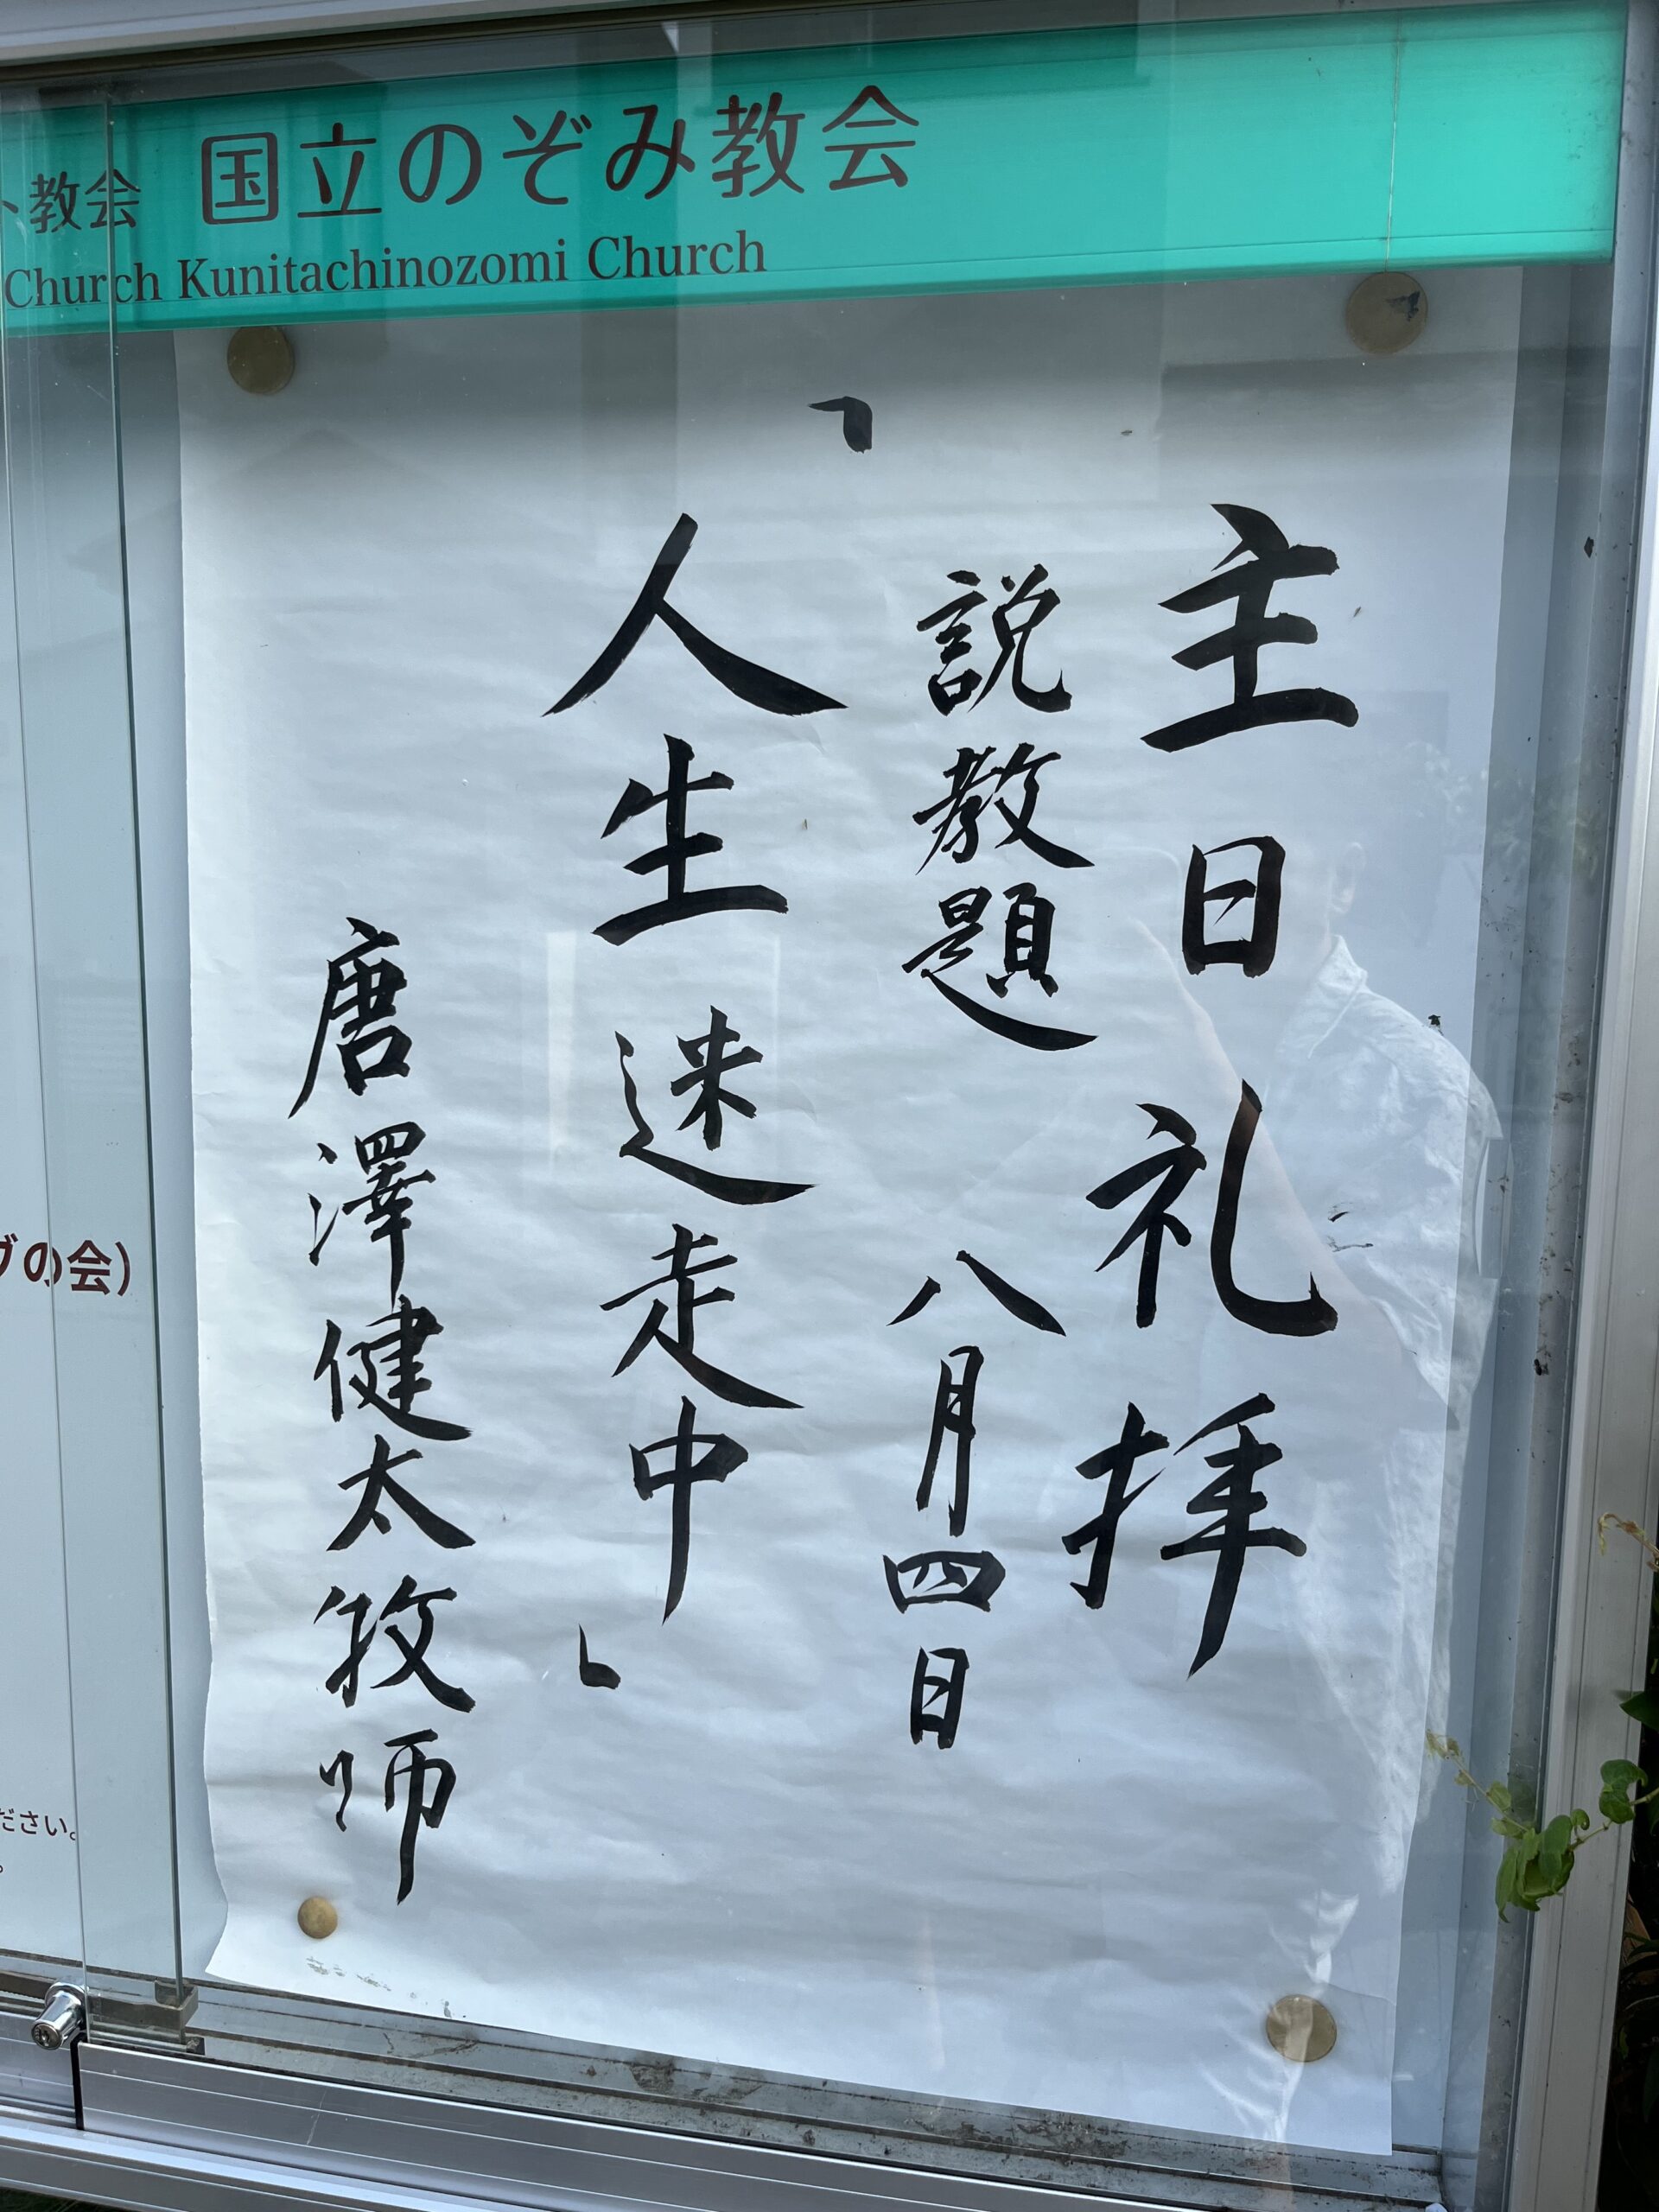 ト教会 国立のぞみ教会
Church Kunitachinozomi Church
主日礼拝
説教題 八月四日
「人生迷走中」
唐澤健太牧師
グの会)
ださい。
。